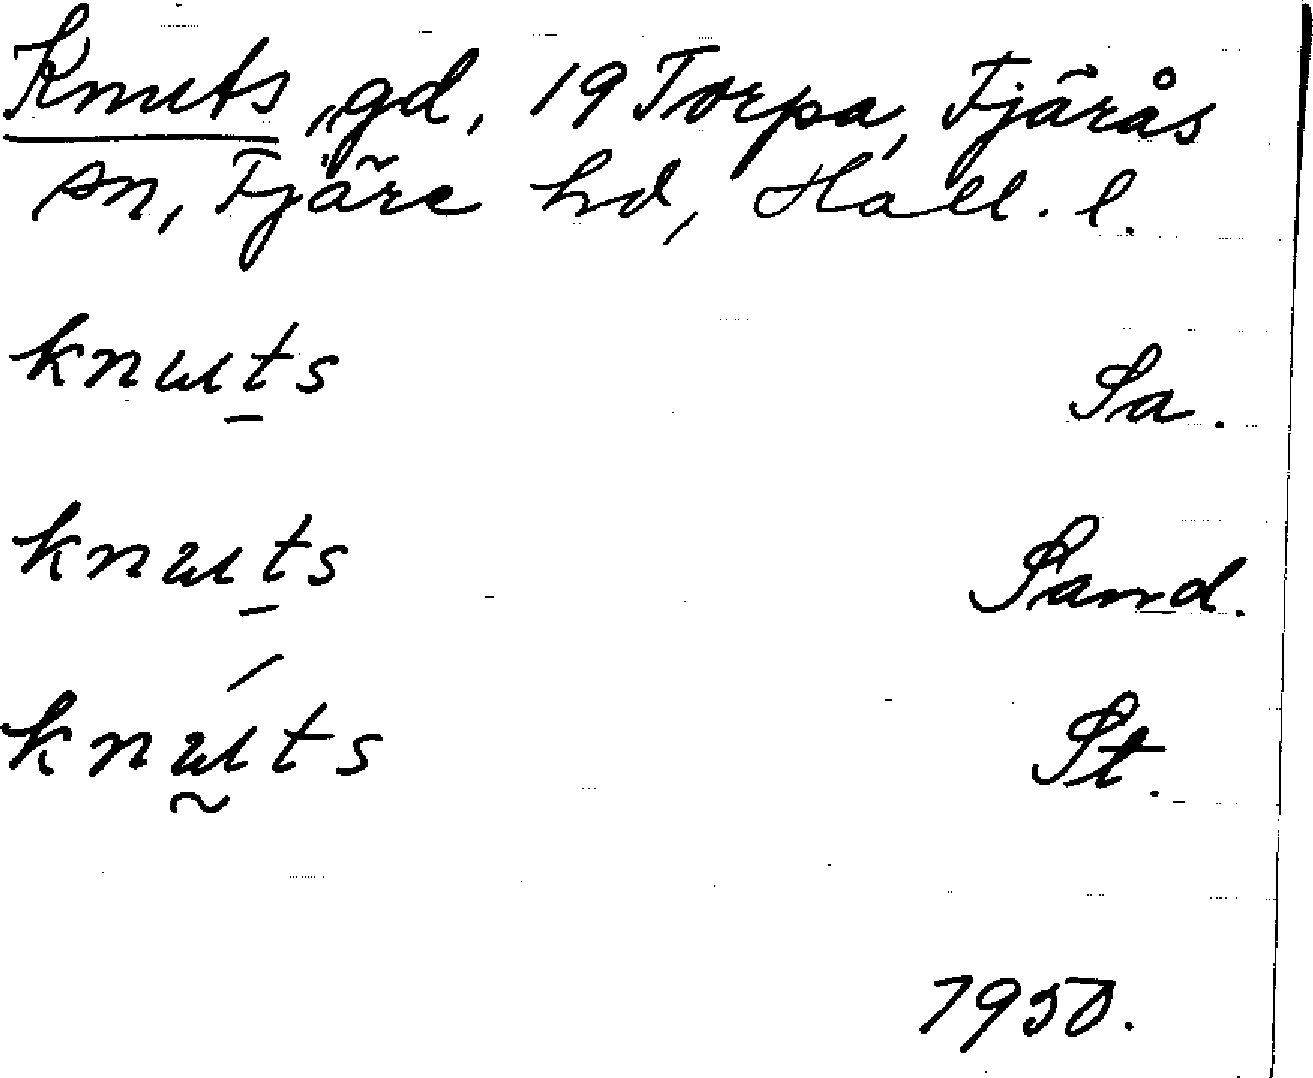 Knuts, gd, 19 Torpa, Fjärås
sn, Fjäre hd, Hall. l.
knuts Sa.
knuts Sand.
knuts St.
1950.